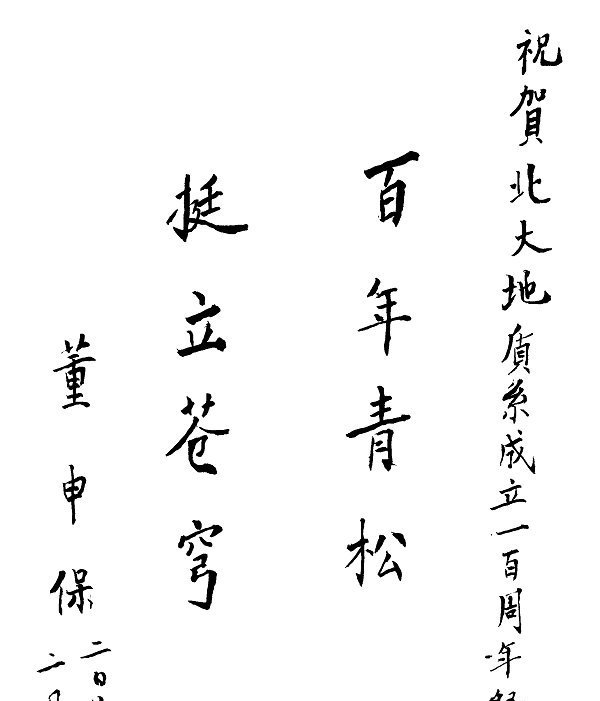 祝賀北大地质系成立一百周年
百年青松
挺立苍穹
董申保